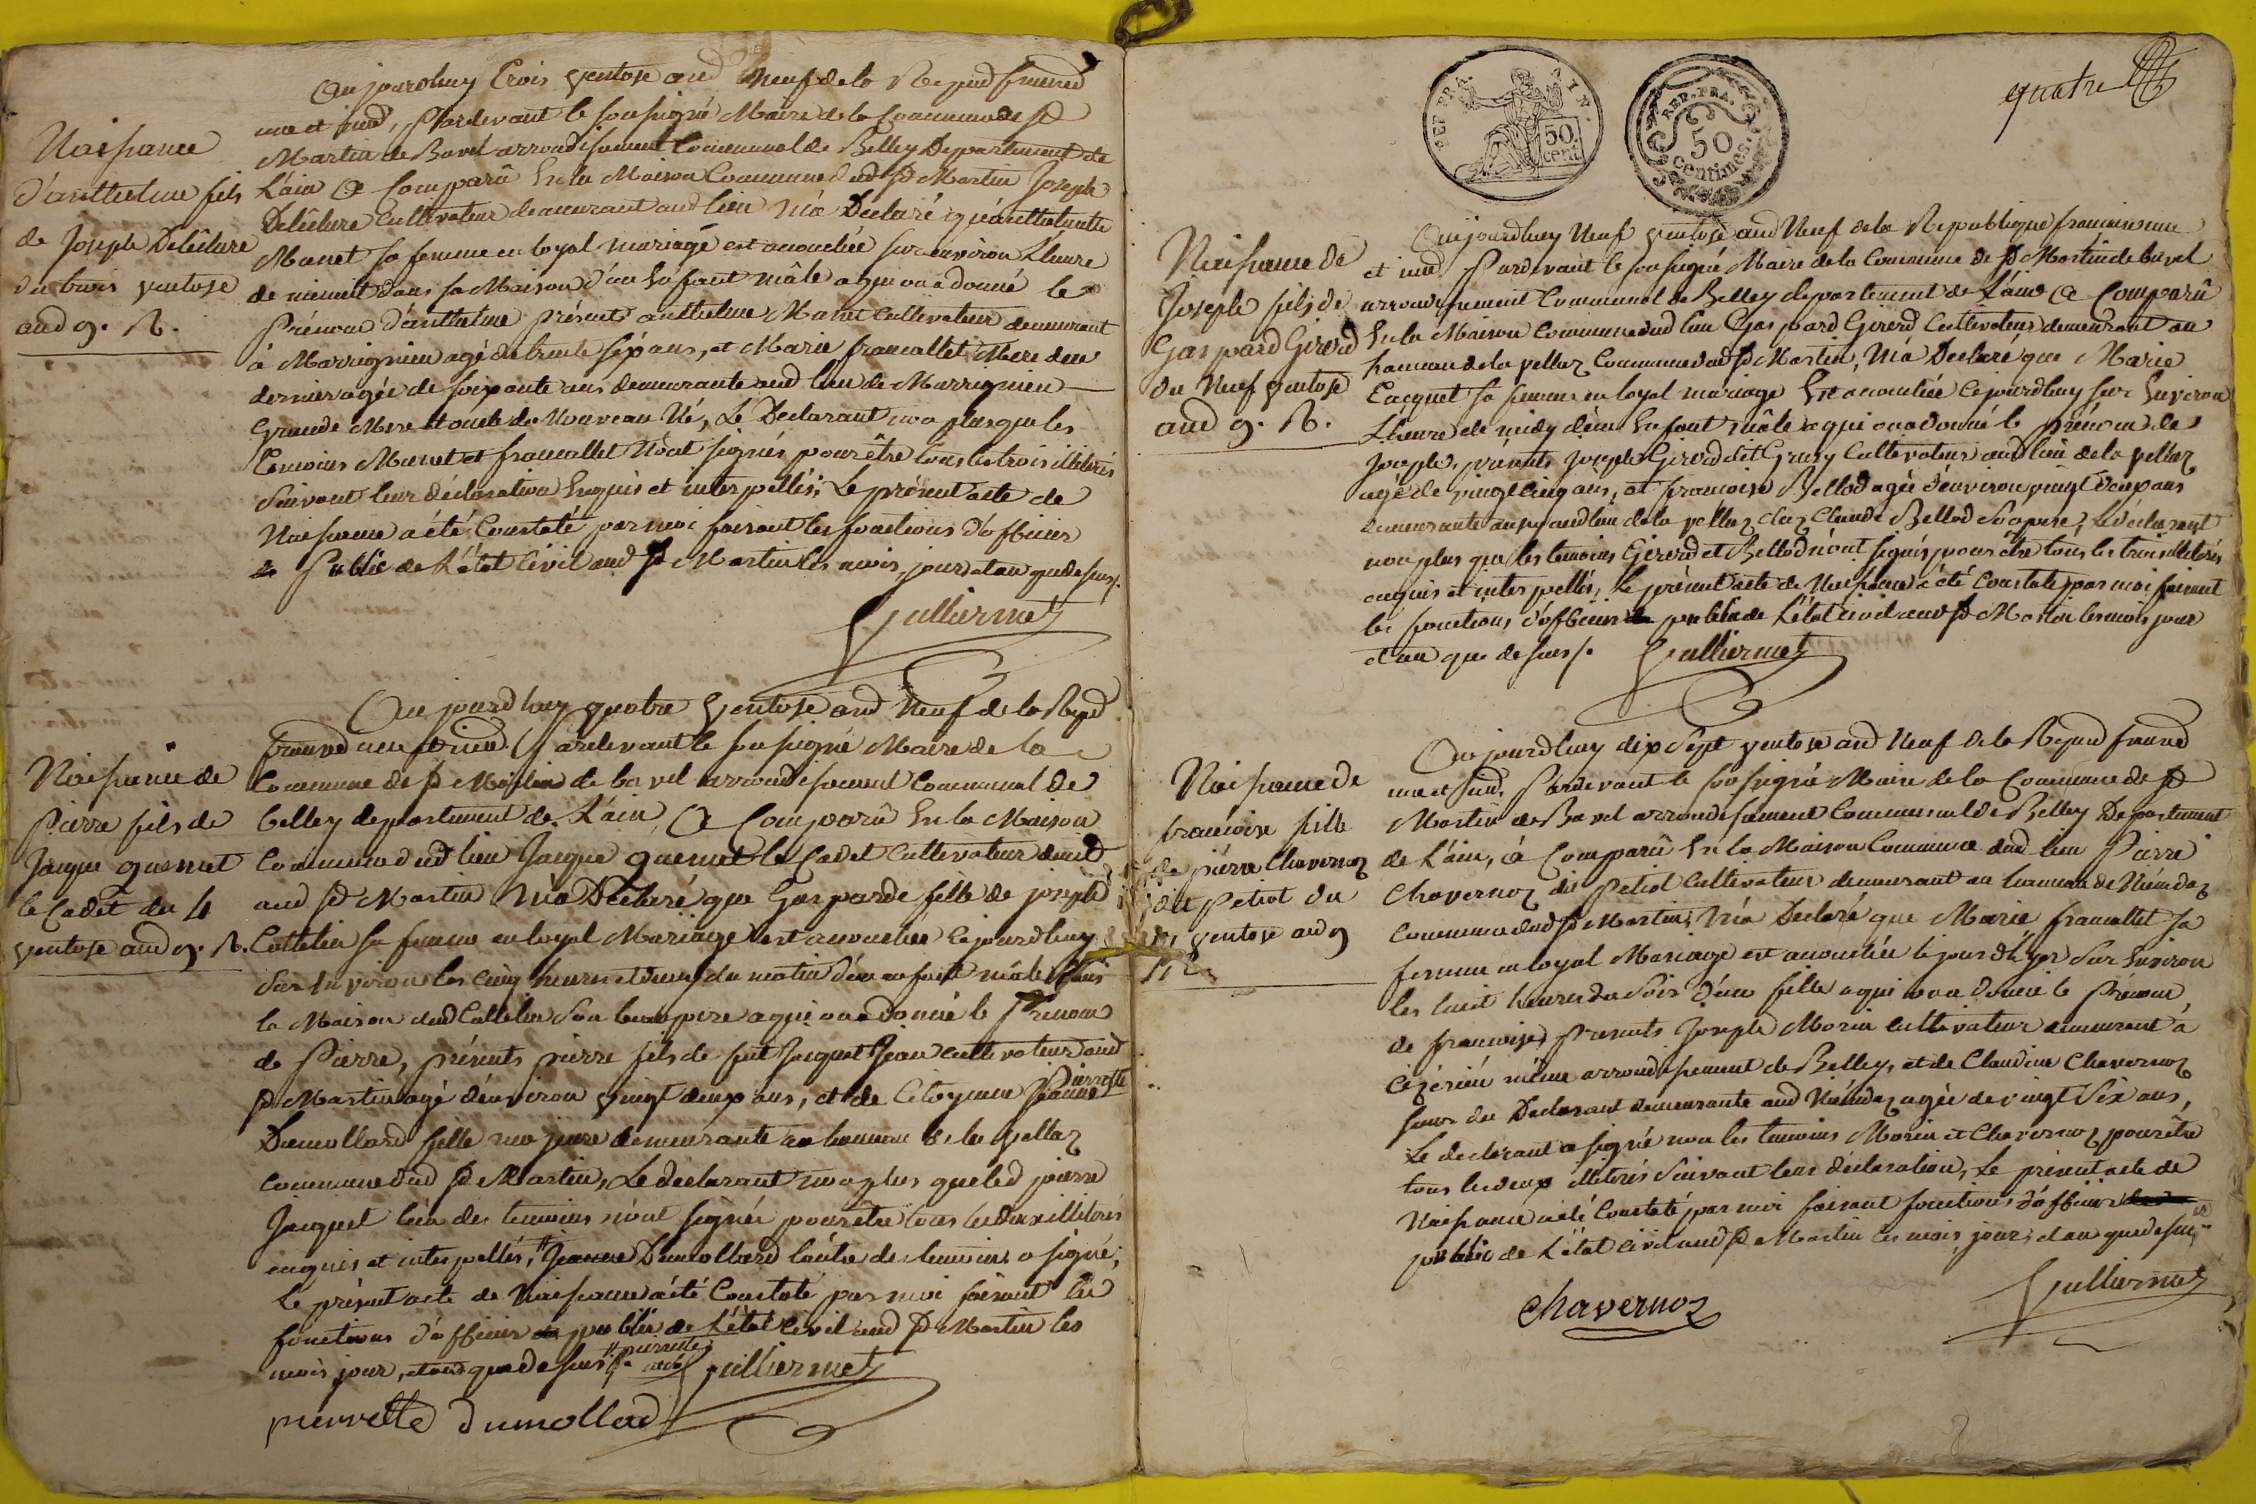 Naissance
d'anthelme fils
de Joseph Delêilure
du trois ventose
and 9. R.
Aujourdhuy trois ventose and Neuf de la Repud francd
une et indd, Pardevant le sousigné Maire de la Commune de St
Martin de Bavel arrondissement Communal de Belley Departement de
L'ain a Comparû En la Maison Commune dud St Martin Joseph
cultivateur demeurant aud lieu M'a Declaré qu'anthelmette
Manet sa femme en loyal mariage est acouchée sur environ Lheure
de mienuit dans sa Maison d'un Enfant mâle a qui on a donné le
Prénom d'anthelme présents anthelme Manet Cultivateur demeurant
à Marrignieu agé de trente sept ans, et Marie francallet Mere de ce
dernier agée de soixante ans demeurante aud lieu de Marrignieu
Grande Mere et oncle du Nouveau Né, Le Declarant non plus que les
temoins Manet et francallet N'ont signés pour être tous les trois illiterés
Suivant leur déclaration Enquis et interpellés; Le présent acte de
Naissance a été Constaté par moi faisant les fonctions d'officier
Public de L'état Civil aud St Martin les mois, jour et an que dessus/.
Gulliermet
Naissance de
Pierre fils de
Jacque guemet
le Cadet du 4
ventose and 9. R.
Aujourdhuy quatre ventose and Neuf de la Repd
francd une et indd Pardevant le sousigné Maire de la
Commune de St Martin de bavel arrondissement Communal de
belley departement de L'ain, a Comparû En la Maison
Commune dud lieu Jacque guemet le Cadet Cultivateur
aud St Martin M'a Declaré que Gasparde fille de joseph
Cattelin sa femme en loyal Mariage est acouchée Cejourdhuy
sur Environ les cinq heures et demy du matin d'un enfant mâle dans
la Maison dud Cattelin son beaupere a qui on a donné le Prenom
de Pierre, présents pierre fils de fut Jacquet Jean cultivateur aud
St Martin agé d'environ vingt deux ans, et de Citoyenne Jeanne Pierrette
Dumollard fille majeure demeurante au hameau de la vellaz
Commune dud St Martin, Le déclarant non plus que led pierre
Jacquet l'un des temoins n'ont signés pour être tous les deux illiterés
enquis et interpellés, # Jeanne Dumollard l'autre des temoins a signé;
Le présent acte de Naissance a été Constaté par moi faisant les
fonctions d'officier public de L'état Civil aud St Martin les
mois jour, et an que dessus/. # pierrette
Gulliermet
pierrette dumollad
REP. FRA.
50
cent.
REP. FRA.
50
Centimes.
quatre
Naissance de
Joseph fils de
Gaspard Girerd
du Neuf ventose
and 9. R.
Aujourdhuy Neuf ventose and Neuf de la Republique francaise une
et indd Pardevant le sousigné Maire de la Commune de St Martin de bavel
arrondissement Communal de Belley departement de L'ain a Comparû
En la Maison Commune dud lieu Gaspard Girerd Cultivateur demeurant au
hameau de la vellaz Commune dud St Martin, M'a Declaré que Marie
Cacquet sa femme en loyal mariage Est acouchée Cejourdhuy sur Environ
Lheure de midy d'un Enfant mâle a qui on a donné le prénom de
Joseph, présents Joseph Girerd dit Grusy Cultivateur aud lieu de la vellaz
agé de vingt cinq ans, et francoise Bellod agée d'environ vingt deux ans
demeurante aussy aud lieu de la vellaz chez Claude Bellod son pere, Le déclarant
non plus que les temoins Girerd et Bellod n'ont signés pour être tous les trois illiterés
enquis et interpellés, Le présent acte de Naissance a été Constaté par moi faisant
les fonctions d'officier public de L'état Civil aud St Martin les mois jour
et an que dessus/.
Gulliermet
Naissance de
francoise fille
de pierre Chavernoz
dit petiot du
17 ventose and 9
R.
Aujourdhuy dix Sept ventose and Neuf de la Repud francd
une et indd, Pardevant le sousigné Maire de la Commune de St
Martin de Bavel arrondissement Communal de Belley Departement
de L'ain, à Comparû En la Maison Commune dud lieu Pierre
Chavernoz dit petiot Cultivateur demeurant au hameau de Niémdaz
Commune dud St Martin, M'a Declaré que Marie francallet sa
femme en loyal Mariage est acouchée le jour d'hyer sur Environ
les huit heures du Soir d'une fille a qui on a donné le Prénom
de francoise, Presents Joseph Morin cultivateur demeurant à
Cezérieu même arrondissement de Belley, et de Claudine Chavernoz
soeur du Declarant demeurante aud Niémdaz agée de vingt Six ans,
Le declarant a signé non les temoins Morin et Chavernoz pour être
tous les deux illiterés Suivant leur déclaration, Le présent acte de
Naissance a été Constaté par moi faisant fonctions d'officier
public de L'état Civil aud St Martin les mois, jour, et an que dessus
Chavernoz
Gulliermet